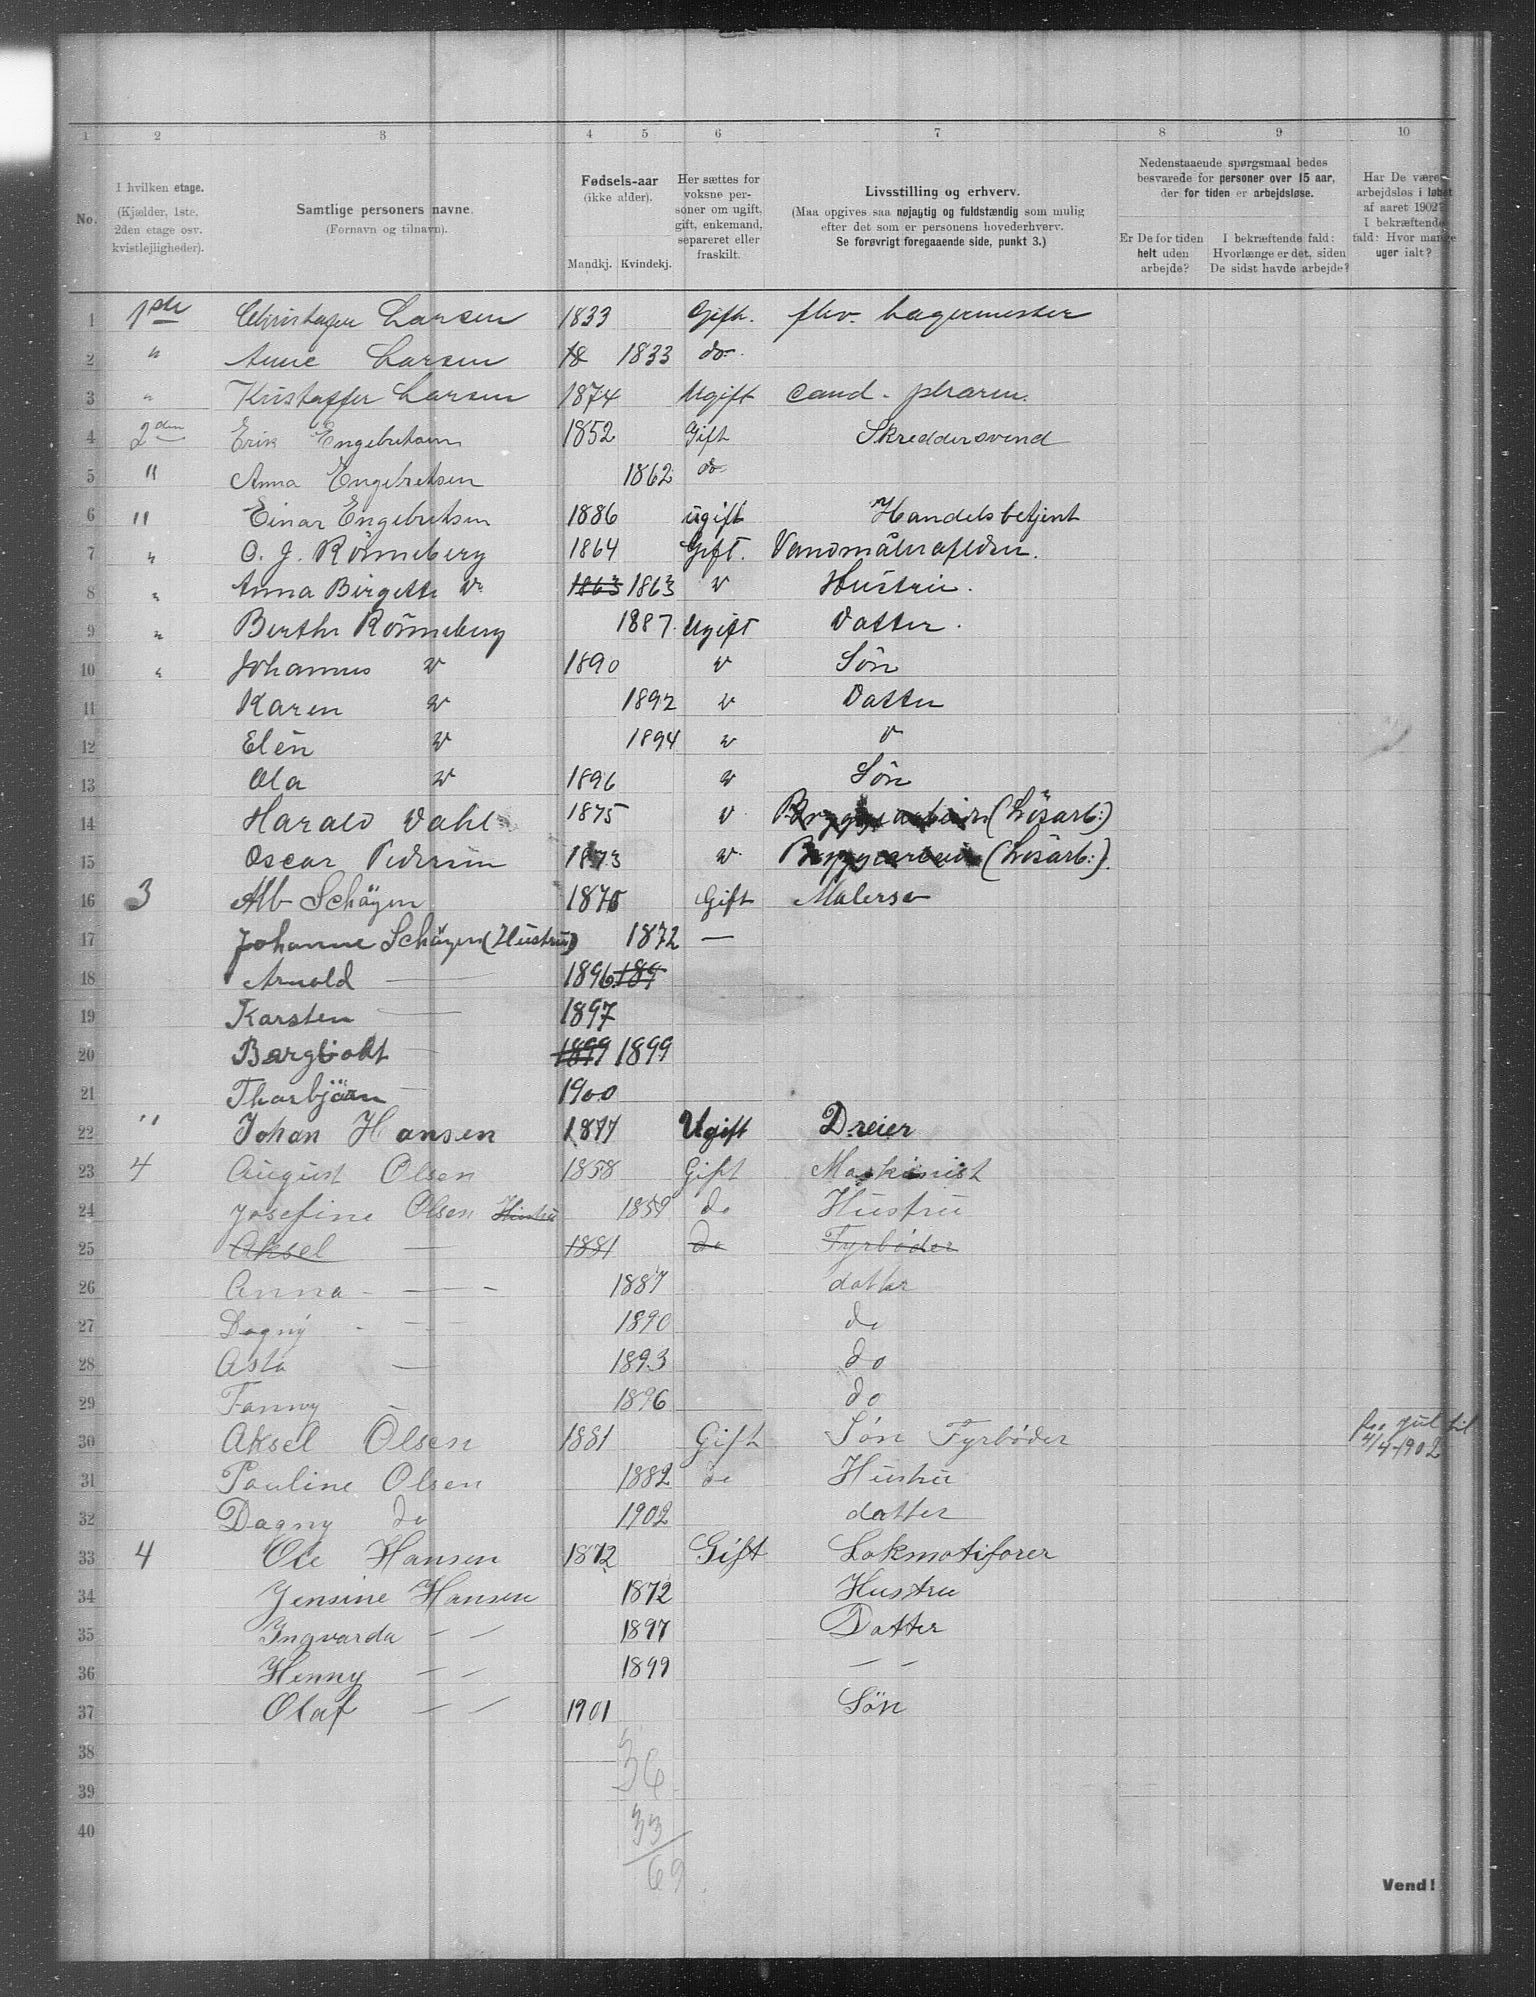 1 2 3 4 5 6 7 8 9 10
No.
I hvilken etage.
(Kjælder, 1ste,
2den etage osv.
kvistlejligheder).
Samtlige personers navne.
(Fornavn og tilnavn).
Fødsels-aar
(ikke alder).
Mandkj. Kvindekj.
Her sættes for
voksne per-
soner om ugift,
gift, enkemand,
separeret eller
fraskilt.
Livsstilling og erhverv.
(Maa opgives saa nøjagtig og fuldstændig som mulig
efter det som er personens hovederhverv.
Se forøvrigt foregaaende side, punkt 3.)
Nedenstaaende spørgsmaal bedes
besvarede for personer over 15 aar,
der for tiden er arbejdsløse.
Er De for tiden
helt uden
arbejde?
I bekræftende fald:
Hvorlænge er det, siden
De sidst havde arbejde?
Har De været
arbejdsløs i løbet
af aaret 1902?
I bekræftende
fald: Hvor mange
uger ialt?
1 1ste Christofer Larsen 1833 Gift. Lagermester
2 " Anne Larsen 18 1833 do.
3 " Kristoffer Larsen 1874 Ugift cand. pharm.
4 2den Erik Engebretsen 1852 Gift Skreddersvend
5 " Anna Engebretsen 1862 do
6 " Einar Engebretsen 1886 ugift Handelsbetjent
7 " O. J. Rönneberg 1864 Gift. Vandmålerafldn.
8 " Anna Birgette v 1863 1863 v Hustru.
9 " Berthe Rönneberg 1887. Ugift Datter.
10 " Johannes v 1890 v Sön
11 Karen v 1892 v Datter
12 Elen v 1894 v v
13 Ola v 1896 v Sön
14 Harald Dahl 1875 v Bryggearbeider (Lösarb:)
15 Oscar Pedersen 1873 v. Bryggearbeid (Lösarb:).
16 3 Alb Schöyen 1875 Gift Malersv
17 Johanne Schöyen (Hustru) 1872 —
18 Arnold — 1896 189
19 Karsten — 1897
20 Bergliott — 1899 1899
21 Thorbjörn — 1900
22 " Johan Hansen 1877 Ugift Dreier
23 4 August Olsen 1858 Gift Maskinist
24 Josefine Olsen Hustru 1859 do Hustru
25 Aksel — 1881 do Fyrbøder
26 Anna - — - 1887 datter
27 Dagny - — 1890 do
28 Asta — 1893 do
29 Fanny 1896 do
30 Aksel Olsen 1881 Gift Søn Fyrbøder fra jul til
4/4-1902
31 Pauline Olsen 1882 do Hustru
32 Dagny do 1902 datter
33 4 Ole Hansen 1872 Gift Lokmotiförer
34 Jensine Hansen 1872 Hustru
35 Ingvarda — — 1897 Datter
36 Henny — — 1899 — —
37 Olaf — — 1901 Sön
38 36
39
40 33
69
Vend!